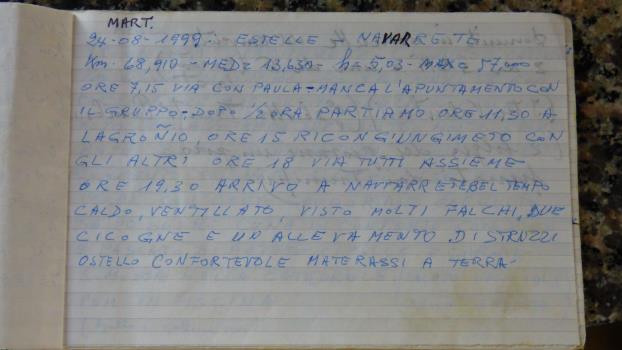 MART.
24-08-1999. ESTELLE - NAVARRETE
Km. 68,910 - MED= 13,630= h= 5,03- MAX= 57,000
ORE 7,15 VIA CON PAULA-MANCA L'APUNTAMENTO CON
IL GRUPPO-DOPO 1/2 ORA PARTIAMO, ORE 11,30 A
LAGROÑIO ORE 15 RICONGIUNGIMETO CON
GLI ALTRI ORE 18 VIA TUTTI ASSIEME
ORE 19,30 ARRIVO A NAVARRETE BEL TEMPO
CALDO, VENTILLATO, VISTO MOLTI FALCHI, DUE
CICOGNE E UN ALLEVAMENTO DI STRUZZI
OSTELLO CONFORTEVOLE MATERASSI A TERRA